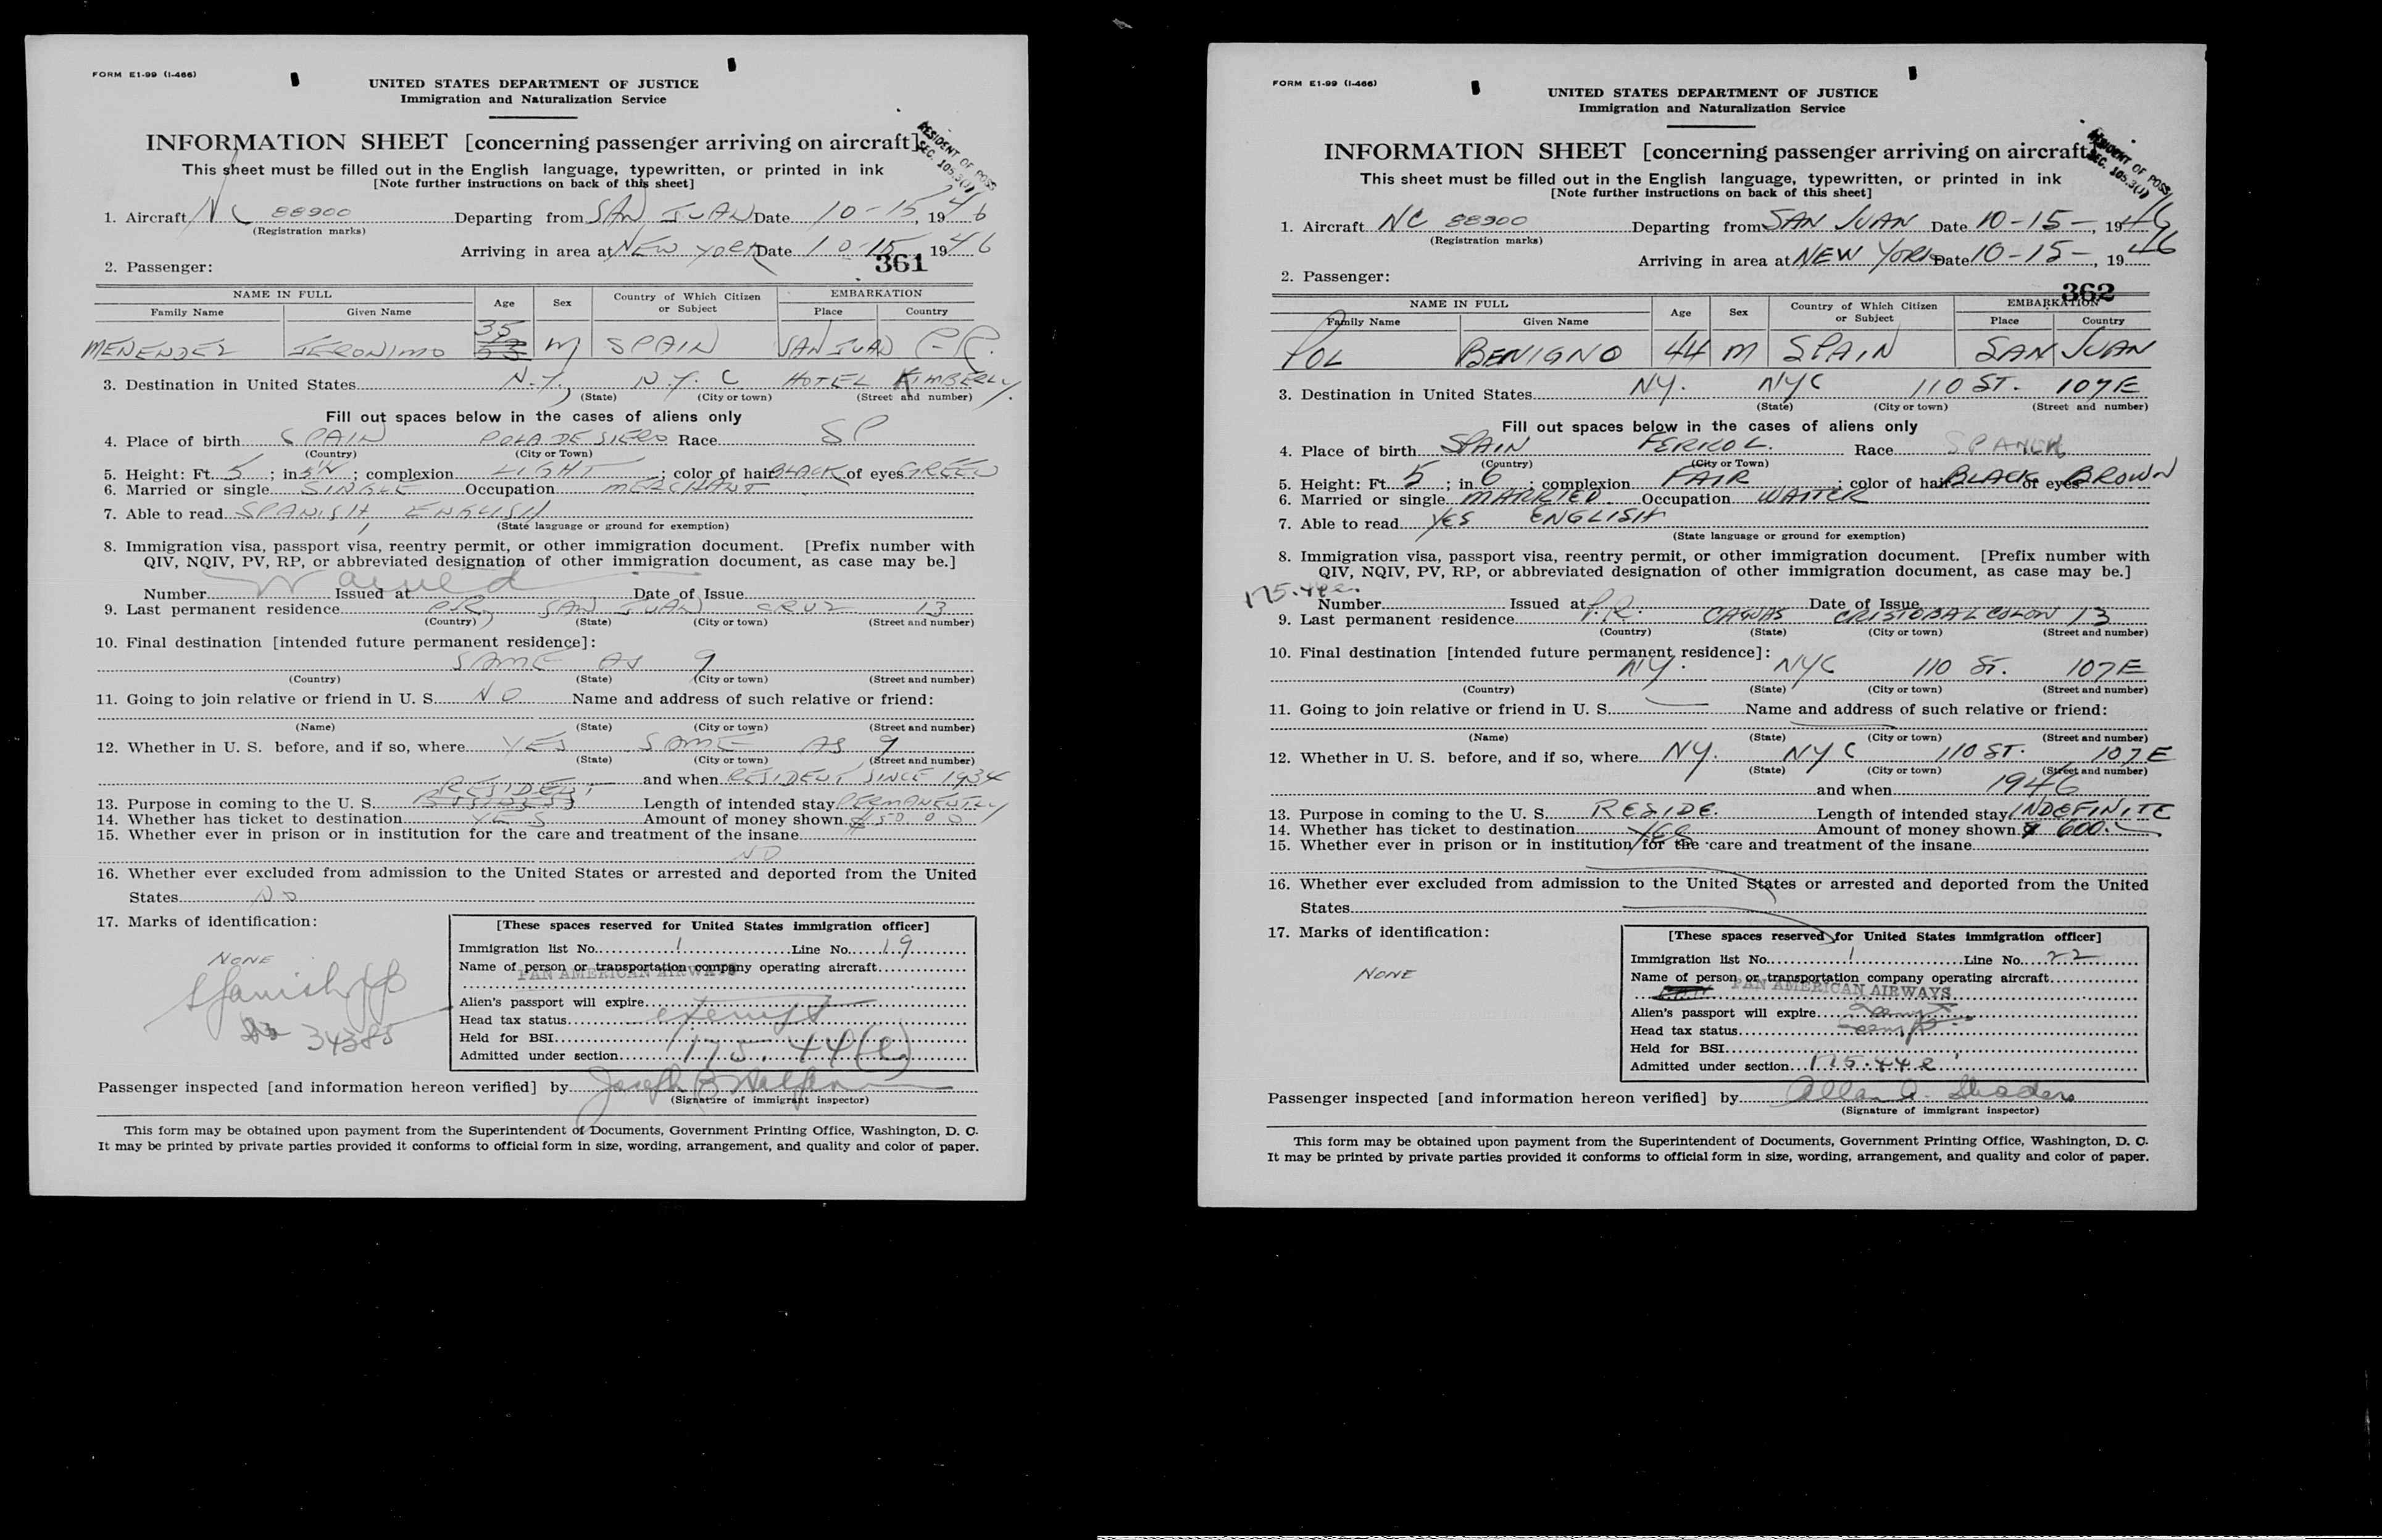 FORM E1-99 (I-466)
UNITED STATES DEPARTMENT OF JUSTICE
Immigration and Naturalization Service
INFORMATION SHEET [concerning passenger arriving on aircraft]
RESIDENT OF POSS.
SEC. 105.3(1)
This sheet must be filled out in the English language, typewritten, or printed in ink
[Note further instructions on back of this sheet]
1. Aircraft NC 88900 Departing from SAN JUAN Date 10-15, 1946
(Registration marks)
Arriving in area at NEW YORK Date 10-15 1946
361
2. Passenger:
NAME IN FULL Age Sex Country of Which Citizen or Subject EMBARKATION
Family Name Given Name Place Country
35
MENENDEZ JERONIMO M SPAIN SAN JUAN P.R.
3. Destination in United States N.Y., N.Y.C HOTEL KIMBERLY.
(State) (City or town) (Street and number)
Fill out spaces below in the cases of aliens only
4. Place of birth SPAIN POLA DE SIERO Race SP
(Country) (City or Town)
5. Height: Ft. 5; in. ; complexion LIGHT; color of hair BLACK of eyes GREEN
6. Married or single SINGLE Occupation MERCHANT
7. Able to read SPANISH, ENGLISH
(State language or ground for exemption)
8. Immigration visa, passport visa, reentry permit, or other immigration document. [Prefix number with
QIV, NQIV, PV, RP, or abbreviated designation of other immigration document, as case may be.]
Waived
Number Issued at Date of Issue
9. Last permanent residence P.R., SAN JUAN CRUZ 13
(Country) (State) (City or town) (Street and number)
10. Final destination [intended future permanent residence]:
SAME AS 9
(Country) (State) (City or town) (Street and number)
11. Going to join relative or friend in U. S. NO Name and address of such relative or friend:
(Name) (State) (City or town) (Street and number)
12. Whether in U. S. before, and if so, where YES SAME AS 9
(State) (City or town) (Street and number)
and when RESIDENT SINCE 1934
RESIDENT
13. Purpose in coming to the U. S. BUSINESS Length of intended stay PERMANENTLY
14. Whether has ticket to destination YES Amount of money shown $50.00
15. Whether ever in prison or in institution for the care and treatment of the insane
NO
16. Whether ever excluded from admission to the United States or arrested and deported from the United
States NO
17. Marks of identification:
NONE
Spanish pp
34385
[These spaces reserved for United States immigration officer]
Immigration list No. 1 Line No. 19
Name of person or transportation company operating aircraft
PAN AMERICAN AIRWAYS
Alien's passport will expire
Head tax status exempt
Held for BSI
Admitted under section 175.44(e)
Passenger inspected [and information hereon verified] by Joseph B.
(Signature of immigrant inspector)
This form may be obtained upon payment from the Superintendent of Documents, Government Printing Office, Washington, D. C.
It may be printed by private parties provided it conforms to official form in size, wording, arrangement, and quality and color of paper.
FORM E1-99 (I-466)
UNITED STATES DEPARTMENT OF JUSTICE
Immigration and Naturalization Service
INFORMATION SHEET [concerning passenger arriving on aircraft]
RESIDENT OF POSS.
SEC. 105.3(1)
This sheet must be filled out in the English language, typewritten, or printed in ink
[Note further instructions on back of this sheet]
1. Aircraft NC 88900 Departing from SAN JUAN Date 10-15-, 1946
(Registration marks)
Arriving in area at NEW YORK Date 10-15-, 1946
2. Passenger:
362
NAME IN FULL Age Sex Country of Which Citizen or Subject EMBARKATION
Family Name Given Name Place Country
POL BENIGNO 44 M SPAIN SAN JUAN
3. Destination in United States NY. NYC 110 ST. 107E
(State) (City or town) (Street and number)
Fill out spaces below in the cases of aliens only
4. Place of birth SPAIN FERICOL. Race SPANCH
(Country) (City or Town)
5. Height: Ft. 5; in. 6; complexion FAIR; color of hair BLACK of eyes BROWN
6. Married or single MARRIED Occupation WAITER
7. Able to read YES ENGLISH
(State language or ground for exemption)
8. Immigration visa, passport visa, reentry permit, or other immigration document. [Prefix number with
QIV, NQIV, PV, RP, or abbreviated designation of other immigration document, as case may be.]
175.44e.
Number Issued at Date of Issue
9. Last permanent residence P.R. CAGUAS CRISTOBAL COLON 13
(Country) (State) (City or town) (Street and number)
10. Final destination [intended future permanent residence]:
NY. NYC 110 ST. 107E
(Country) (State) (City or town) (Street and number)
11. Going to join relative or friend in U. S. Name and address of such relative or friend:
(Name) (State) (City or town) (Street and number)
12. Whether in U. S. before, and if so, where NY. NYC 110 ST. 107E
(State) (City or town) (Street and number)
and when 1946
13. Purpose in coming to the U. S. RESIDE. Length of intended stay INDEFINITE
14. Whether has ticket to destination YES Amount of money shown $ 600.
15. Whether ever in prison or in institution for the care and treatment of the insane
16. Whether ever excluded from admission to the United States or arrested and deported from the United
States
17. Marks of identification:
NONE
[These spaces reserved for United States immigration officer]
Immigration list No. 1 Line No. 22
Name of person or transportation company operating aircraft
PAN AMERICAN AIRWAYS
Alien's passport will expire exempt
Head tax status exempt
Held for BSI
Admitted under section 175.44e
Passenger inspected [and information hereon verified] by Allan A.
(Signature of immigrant inspector)
This form may be obtained upon payment from the Superintendent of Documents, Government Printing Office, Washington, D. C.
It may be printed by private parties provided it conforms to official form in size, wording, arrangement, and quality and color of paper.